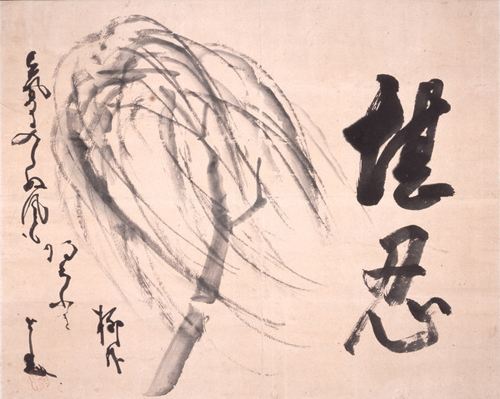 堪忍
気に入らぬ風も
あろふに
柳哉